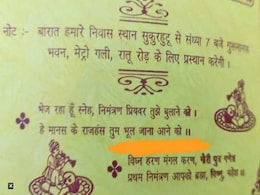 नोट :- बारात हमारे निवास स्थान सुकुरहुटू से संध्या 7 बजे गुरूनानक
भवन, मेट्रो गली, रातू रोड़ के लिए प्रस्थान करेगी।
भेज रहा हूँ स्नेह, निमंत्रण प्रियवर तुझे बुलाने को।
हे मानस के राजहंस तुम भूल जाना आने को॥
विघ्न हरण मंगल करण,
प्रथम निमंत्रण आपको, ब्रह्मा, विष्णु,